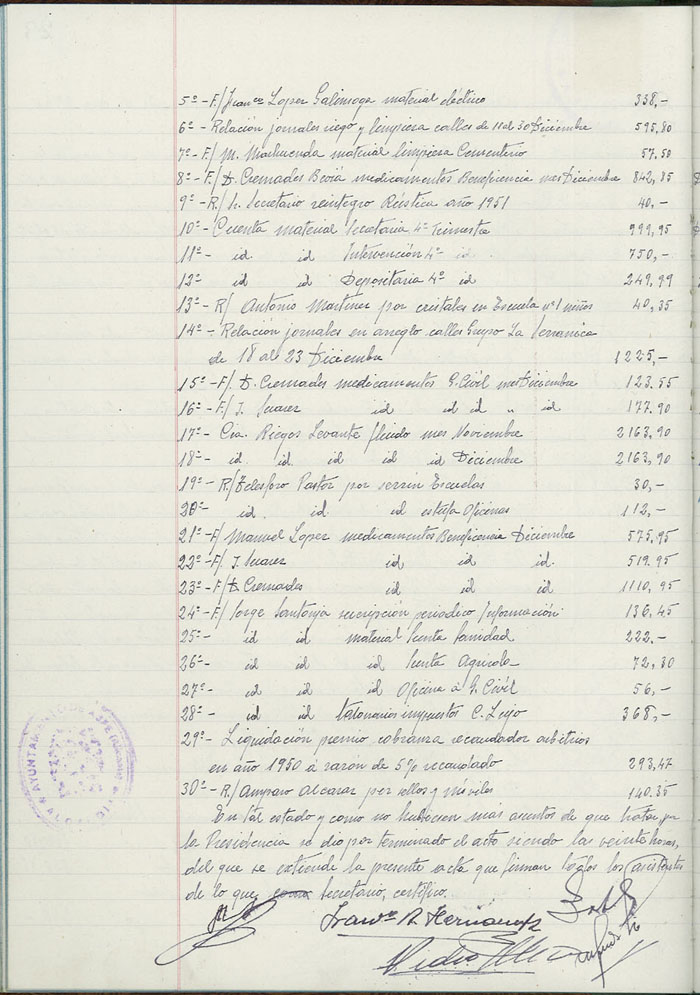 5º - F/ Franco Lopez Galiensoga material electrico 338,-
6º - Relación jornales riego y limpieza calles de 11 al 30 Diciembre 595,80
7º - F/ M. Machuenda material limpieza Cementerio 57,50
8º - F/ D. Cremades Beviá medicamentos Beneficencia mes Diciembre 842,35
9º - R/ Sr. Secretario reintegro Rústica año 1951 40,-
10º - Cuenta material Secretaria 4º Trimestre 999,95
11º - id. id Intervención 4º id 750,-
12º - id id Depositaria 4º id 249,99
13º - R/ Antonio Martinez por cristales en Escuela nº 1 niños 40,35
14º - Relación jornales en arreglo calles Grupo La Serranica
de 18 al 23 Diciembre 1225,-
15º - F/ D. Cremades medicamentos G. Civil mes Diciembre 123.55
16º - F/ J. Suarez id id id " id 177.90
17º - Cia. Riegos Levante fluido mes Noviembre 2163,90
18º - id id. id id id Diciembre 2163,90
19º - R/ Telesforo Pastor por serrin Escuelas 30,-
20º - id. id id estufa Oficinas 112,-
21º - F/ Manuel Lopez medicamentos Beneficencia Diciembre 575.95
22º - F/ J. Suarez id id id. 519.95
23º - F/ D. Cremades id id id 1110,95
24º - F/ Jorge Santonja suscripción periodico Información 136,45
25º - id id material Junta Sanidad 222.-
26º - id id id Junta Agricola 72,30
27º - id id id Oficina a G. Civil 56,-
28º - id id talonarios impuestos C. Lujo 368,-
29º - Liquidación premio cobranza recaudador arbitrios
en año 1950 á razon de 5% recaudado 293,47
30º - R/ Amparo Alcaraz por sellos y móviles 140.35
En tal estado y como no hubiesen más asuntos de que tratar, por
la Presidencia se dio por terminado el acto siendo las veinte horas,
del que se extiende la presente acta que firman todos los asistentes
de lo que, como Secretario, certifico.
Franco A. Hernandez
Pedro
AYUNTAMIENTO DE ASPE